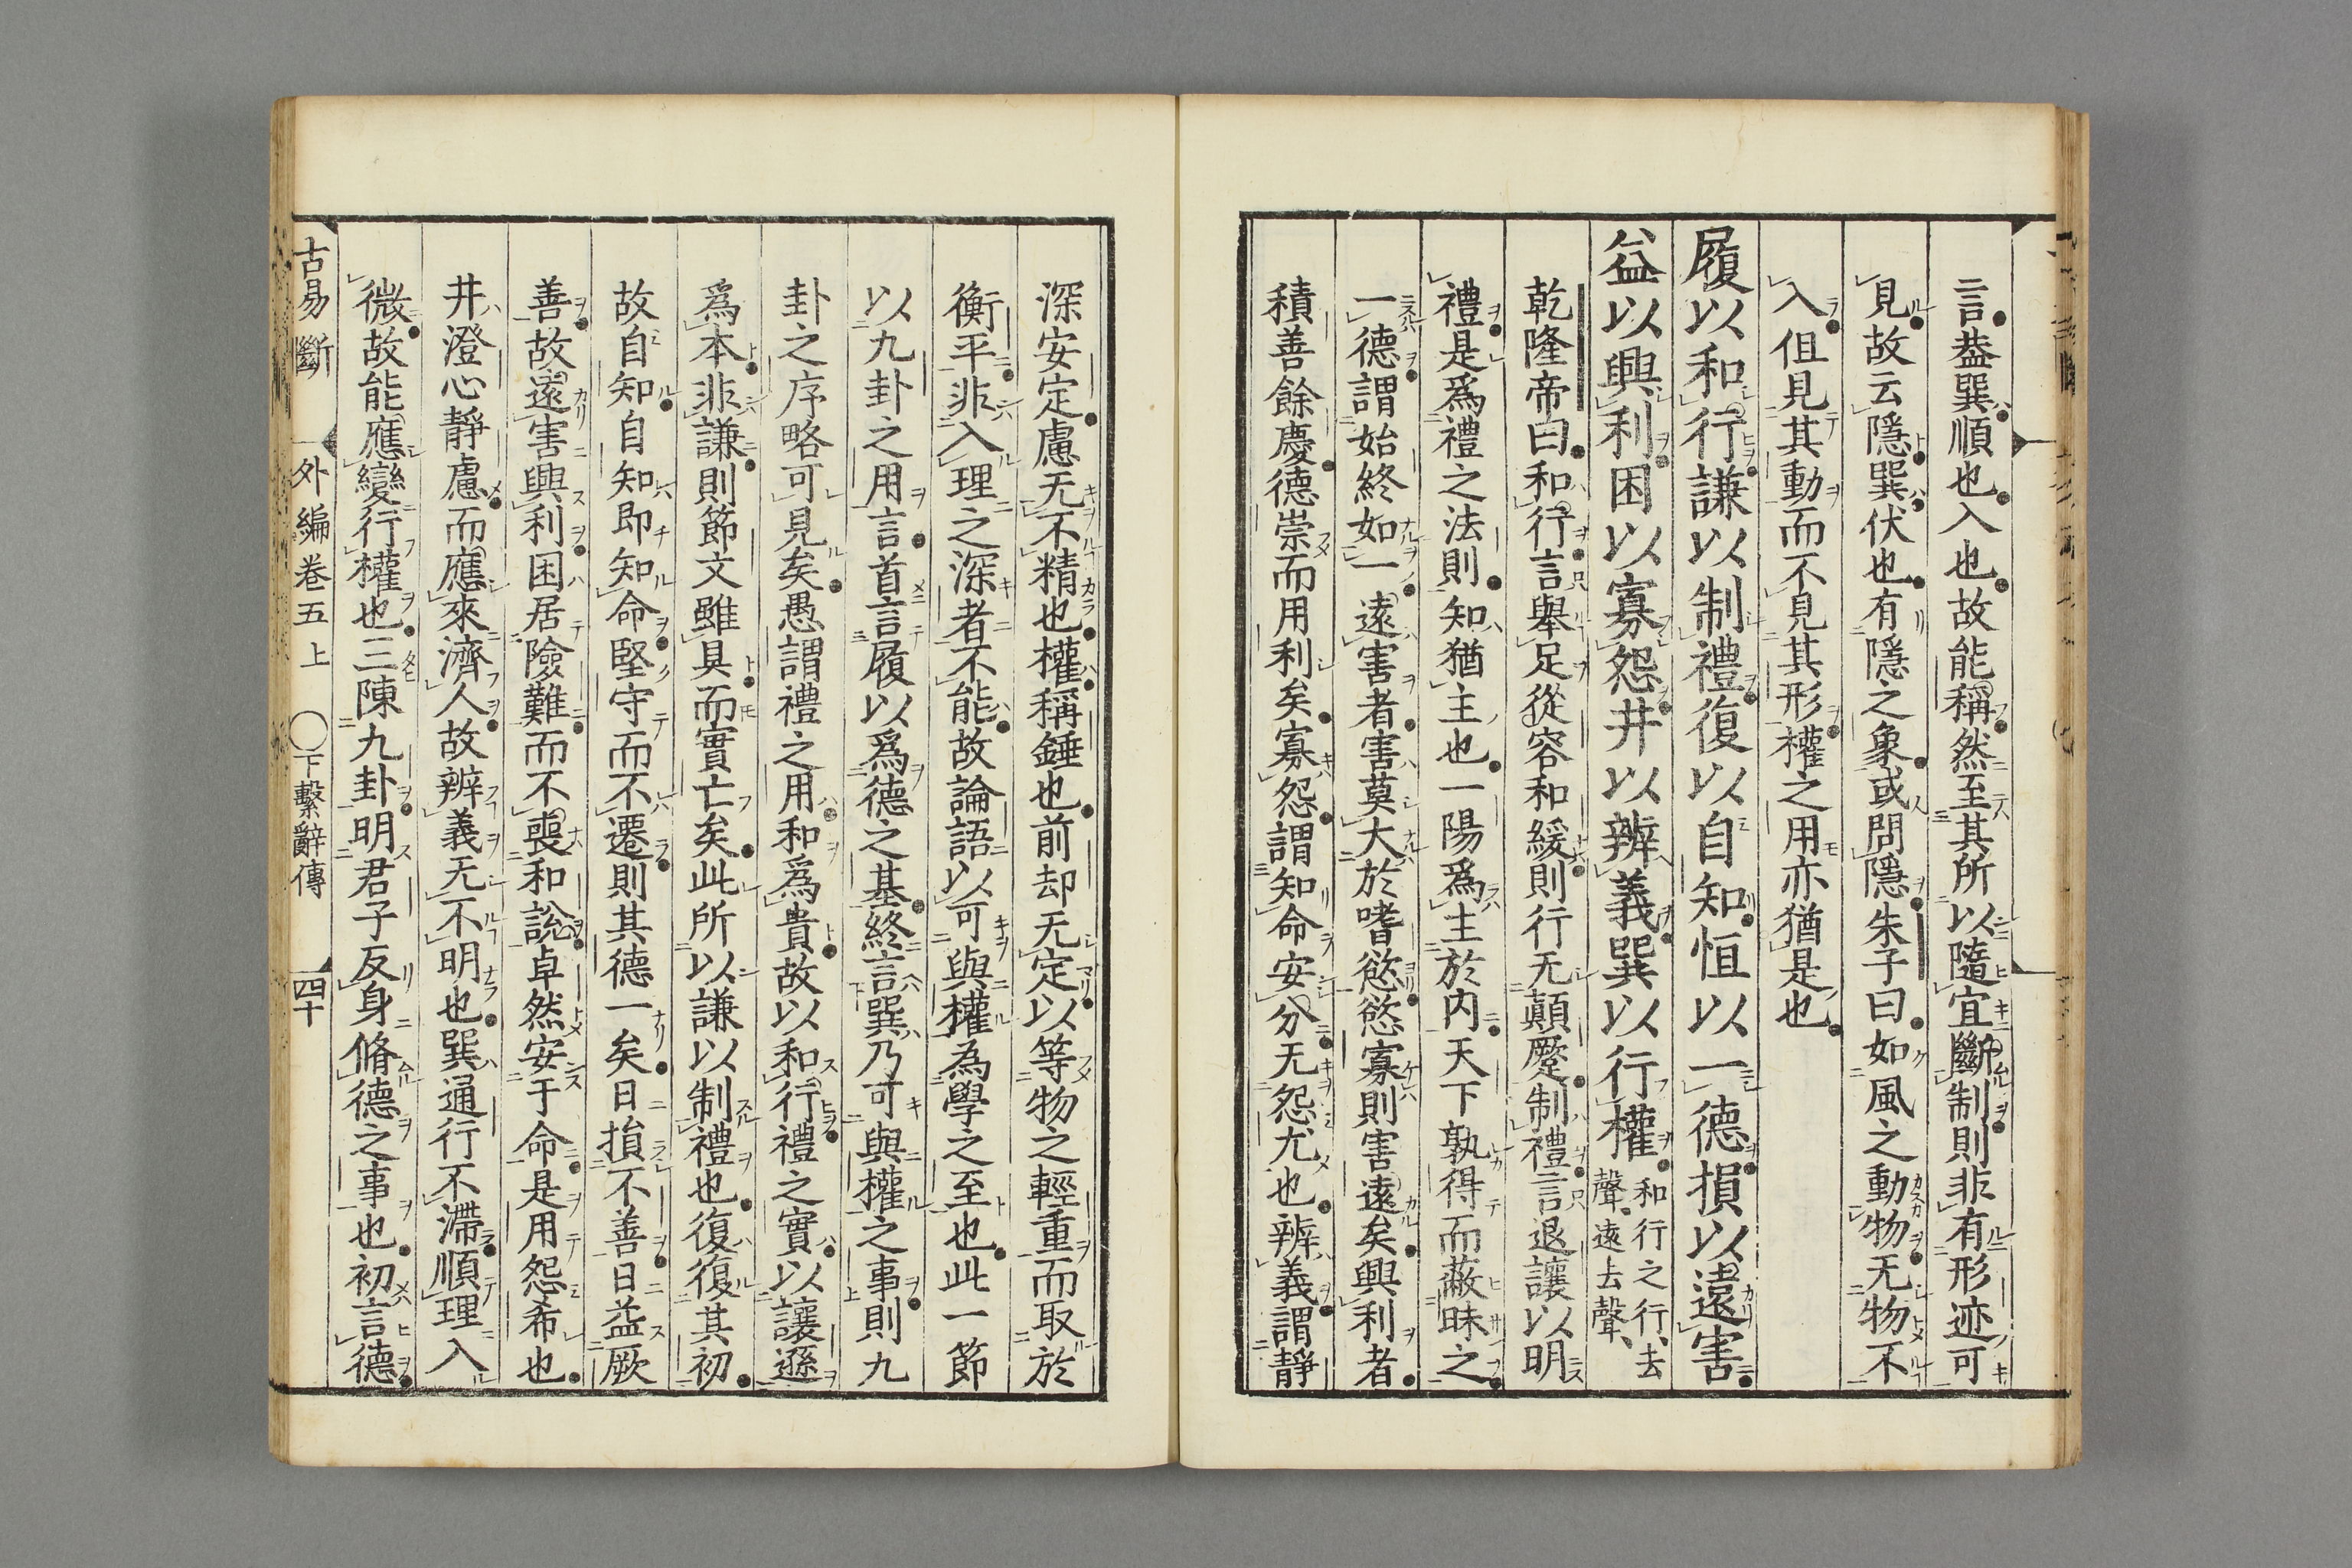 言葢巽順也入也故能稱然至其所以隨宜斷制則非有形迹可
見故云隱巽伏也有隱之象或問隱朱子曰如風之動物无物不
入但見其動而不見其形權之用亦猶是也
履以和行謙以制禮復以自知恒以一德損以遠害
益以興利困以寡怨井以辨義巽以行權和行之行去
聲遠去聲
乾隆帝曰和行言舉足從容和緩則行无顛蹙制禮言退讓以明
禮是爲禮之法則知猶主也一陽爲主於内天下孰得而蔽昧之
一德謂始終如一遠害者害莫大於嗜慾慾寡則害遠矣興利者
積善餘慶德崇而用利矣寡怨謂知命安分无怨尤也辨義謂靜
深安定慮无不精也權稱錘也前却无定以等物之輕重而取於
衡平非入理之深者不能故論語以可與權為學之至也此一節
以九卦之用言首言履以爲德之基終言巽乃可與權之事則九
卦之序略可見矣愚謂禮之用和爲貴故以和行禮之實以讓遜
爲本非謙則節文雖具而實亡矣此所以謙以制禮也復復其初
故自知自知即知命堅守而不遷則其德一矣日損不善日益厥
善故遠害興利困居險難而不喪和說卓然安于命是用怨希也
井澄心靜慮而應來濟人故辨義无不明也巽通行不滯順理入
微故能應變行權也三陳九卦明君子反身脩德之事也初言德
古易斷　外編卷五上　〇下繫辭傳　四十